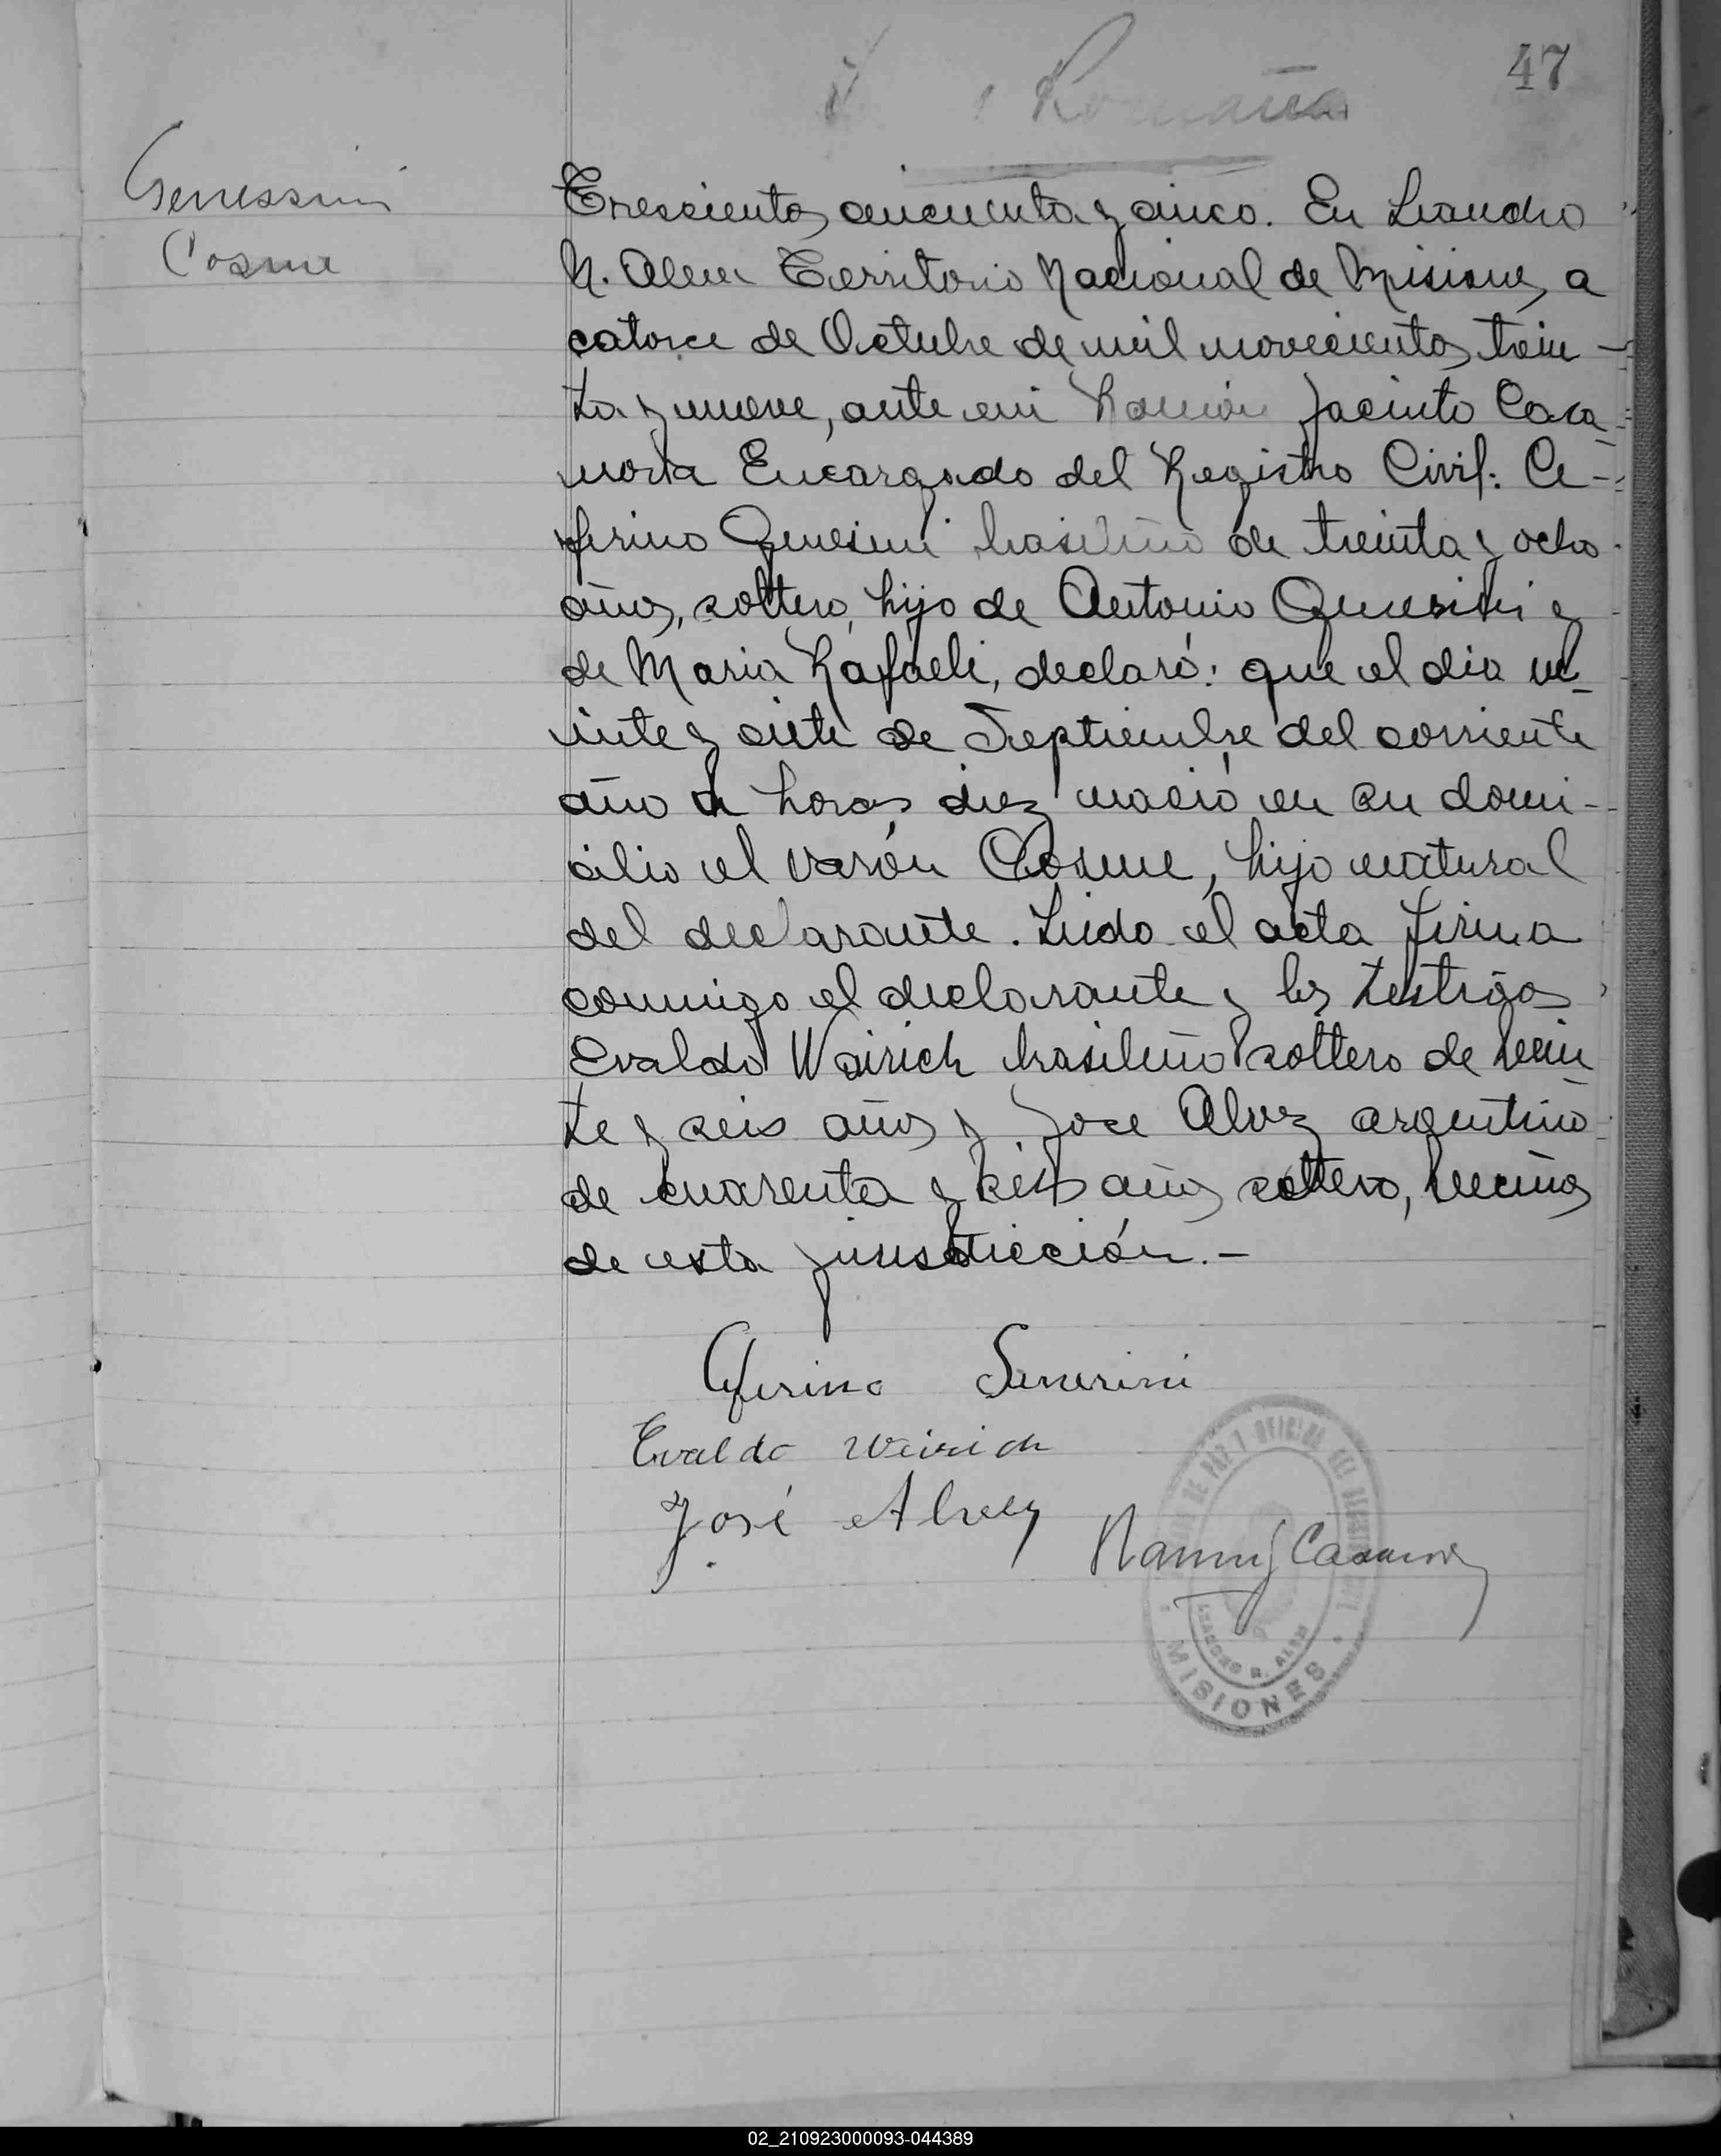 47
Romaña
Genessini
Cosme
Trescientos cincuenta y cinco. En Leandro
N. Alem Territorio Nacional de Misiones, a
catorce de Octubre de mil novecientos trein-
ta y nueve, ante mi Ramón Jacinto Casa-
nova Encargado del Registro Civil: Ce-
ferino Genesini brasileño de treinta y ocho
años, soltero, hijo de Antonio Genesini y
de Maria Rafaeli, declaró: que el dia ve-
inte y siete de Septiembre del corriente
año a horas diez nació en su domi-
cilio el varón Cosme, hijo natural
del declarante. Leido el acta firma
conmigo el declarante y los testigos
Evaldo Weirich brasileño soltero de vein
te y seis años y Jose Alvez argentino
de cuarenta y seis años soltero, vecinos
de esta jurisdicción.-
Ceferino Senerini
Evaldo Weirich
José Alvez
Ramon J Casanova
DE PAZ Y OFICINA DEL REGISTRO CIVIL
LEANDRO N. ALEM
MISIONES
02_210923000093-044389